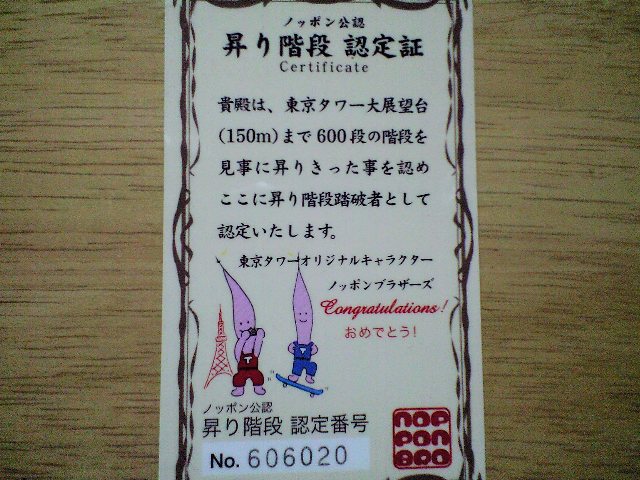 ノッポン公認
昇り階段 認定証
Certificate
貴殿は、東京タワー大展望台
(150m)まで600段の階段を
見事に昇りきった事を認め
ここに昇り階段踏破者として
認定いたします。
東京タワーオリジナルキャラクター
ノッポンブラザーズ
Congratulations!
おめでとう!
ノッポン公認
昇り階段 認定番号
No. 606020
nop
pon
bro